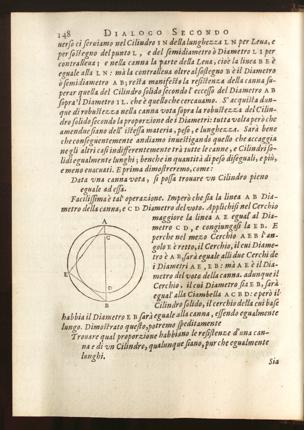 148 DIALOGO SECONDO
uerso ci seruiamo nel Cilindro IN della lunghezza LN per Leua, e
per sostegno del punto L, e del semidiametro ò Diametro LI per
contralleua; e nella canna la parte della Leua, cioè la linea BE è
eguale alla LN: mà la contralleua oltre al sostegno B è il Diametro
ò semidiametro AB, resta manifesto la resistenza della canna su-
perar quella del Cilindro solido secondo l'eccesso del Diametro AB
sopra'l Diametro IL. che è quello che cercauamo. S'acquista dun-
que di robustezza nella canna vota sopra la robustezza del Cilin-
dro solido secondo la proporzione de i Diametri: tutta volta però che
amendue siano dell'istessa materia, peso, e lunghezza. Sarà bene
che conseguentemente andiamo inuestigando quello che accaggia
ne gli altri casi indifferentemente trà tutte le canne, e Cilindri so-
lidi egualmente lunghi; benche in quantità di peso diseguali, e più,
e meno euacuati. E prima dimostreremo, come:
Data vna canna vota, si possa trouare vn Cilindro pieno
eguale ad essa.
Facilissima è tal' operazione. Imperò che sia la linea AB Dia-
metro della canna, e CD Diametro del voto. Applichisi nel Cerchio
maggiore la linea AE egual al Dia-
metro CD, e congiungasi la EB. E
perche nel mezo Cerchio AEB l'an-
golo E è retto, il Cerchio, il cui Diame-
tro è AB, sarà eguale alli due Cerchi de
i Diametri AE, EB: mà AE è il Dia-
metro del voto della canna. adunque il
Cerchio, il cui Diametro sia EB, sarà
egual alla Ciambella ACBD: e però il
Cilindro solido, il cerchio della cui base
habbia il Diametro EB sarà eguale alla canna, essendo egualmente
lungo. Dimostrato questo, potremo speditamente
Trouare qual proporzione habbiano le resistenze d'una can-
na e di vn Cilindro, qualunque siano, pur che egualmente
lunghi.
Sia
A
C
E
D
B